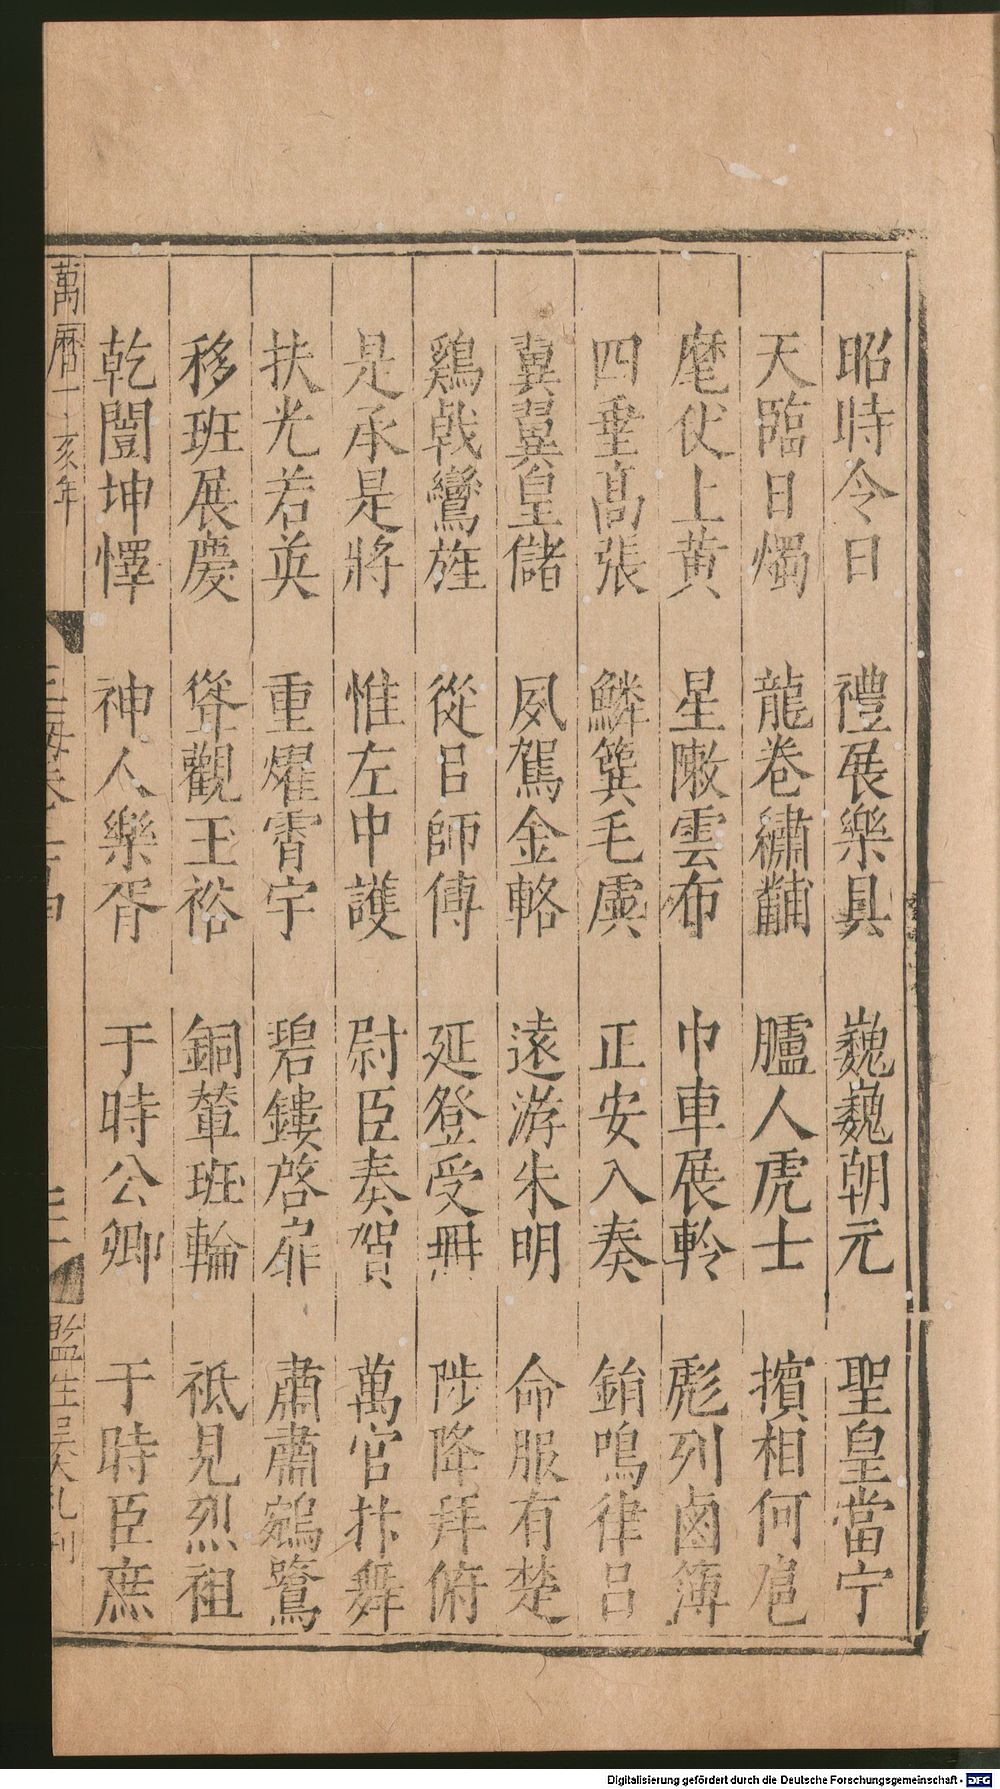 昭時令日 禮展樂具 巍巍朝元 聖皇當宁
天臨日燭 龍卷繡黼 臚人虎士 擯相何扈
麾仗上黃 星敶雲布 巾車展軨 彪列鹵簿
四垂高張 鱗簨毛虡 正安入奏 銷鳴律呂
翼翼皇儲 夙駕金輅 遠游朱明 命服有楚
鷄戟鸞旌 從召師傅 延登受冊 陟降拜俯
是承是將 惟左中護 尉臣奏賀 萬官抃舞
扶光若英 重燿霄宇 碧鏤啓扉 肅肅鵷鷺
移班展慶 聳觀玉裕 銅輦班輪 祗見烈祖
乾闓坤懌 神人樂胥 于時公卿 于時臣庶
萬曆丁亥年
監生吳 刊
Digitalisierung gefördert durch die Deutsche Forschungsgemeinschaft - DFG